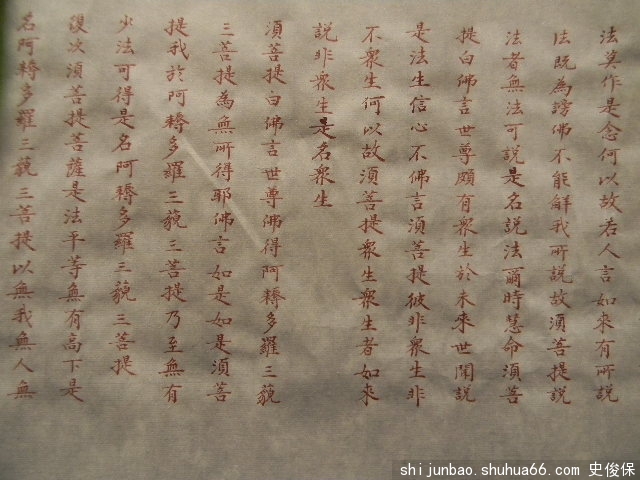 法莫作是念何以故若人言如來有所說
法既為謗佛不能解我所說故須菩提說
法者無法可說是名說法爾時慧命須菩
提白佛言世尊頗有衆生於未来世聞說
是法生信心不佛言須菩提彼非衆生非
不衆生何以故須菩提衆生衆生者如来
說非衆生是名衆生
須菩提白佛言世尊佛得阿耨多羅三藐
三菩提為無所得耶佛言如是如是須菩
提我於阿耨多羅三藐三菩提乃至無有
少法可得是名阿耨多羅三藐三菩提
復次須菩提菩薩是法平等無有高下是
名阿耨多羅三藐三菩提以無我無人無
shijunbao.shuhua66.com 史俊保